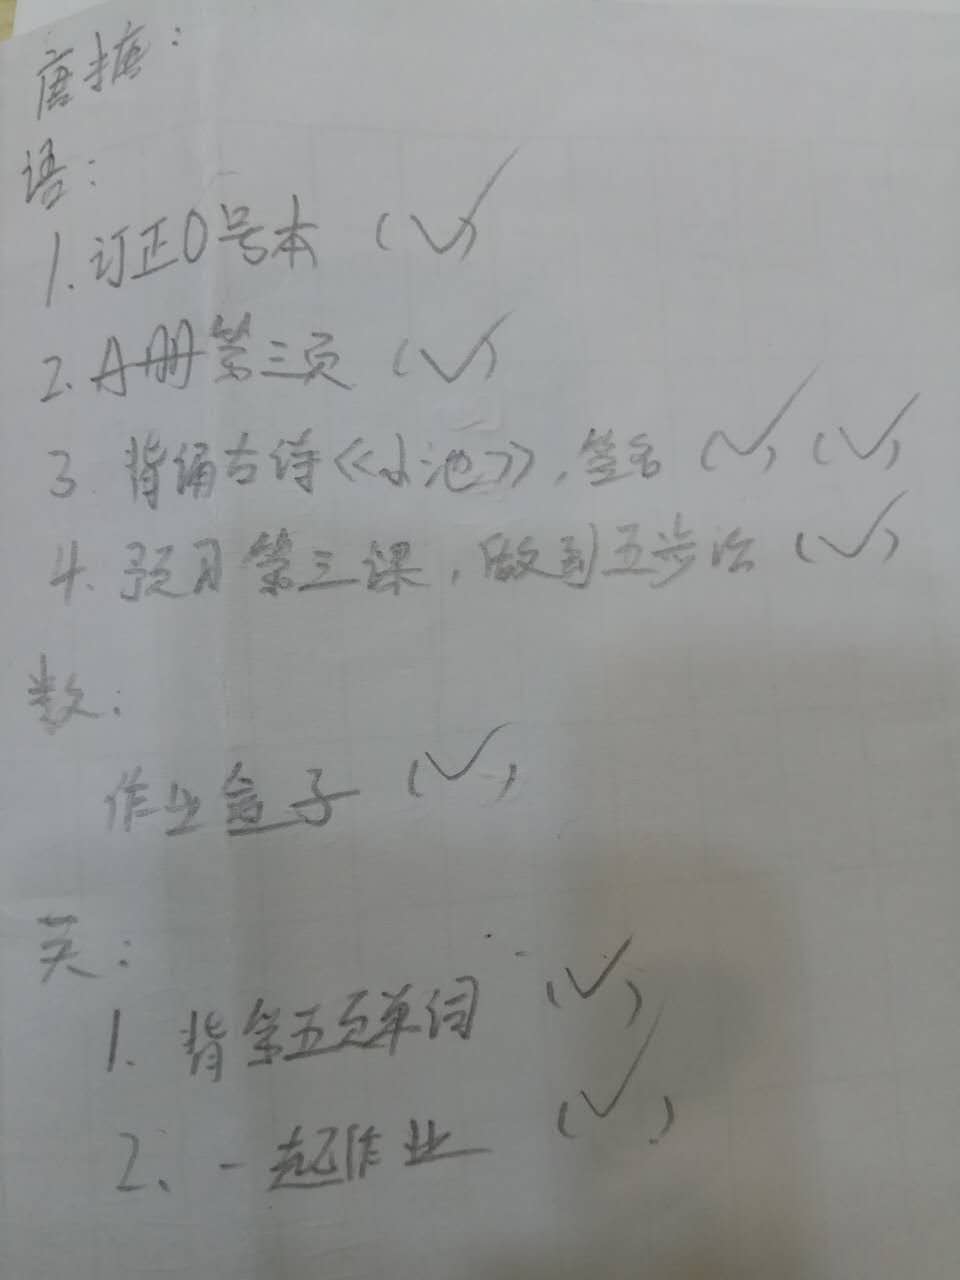 唐搪：
语：
1.订正0号本（√）
2.A册第三页（√）
3 背诵古诗《小池》，签名（√）（√）
4.预习第三课，做到五步法（√）
数：
作业盒子（√）
英：
1.背第五页单词（√）
2、一起作业（√）